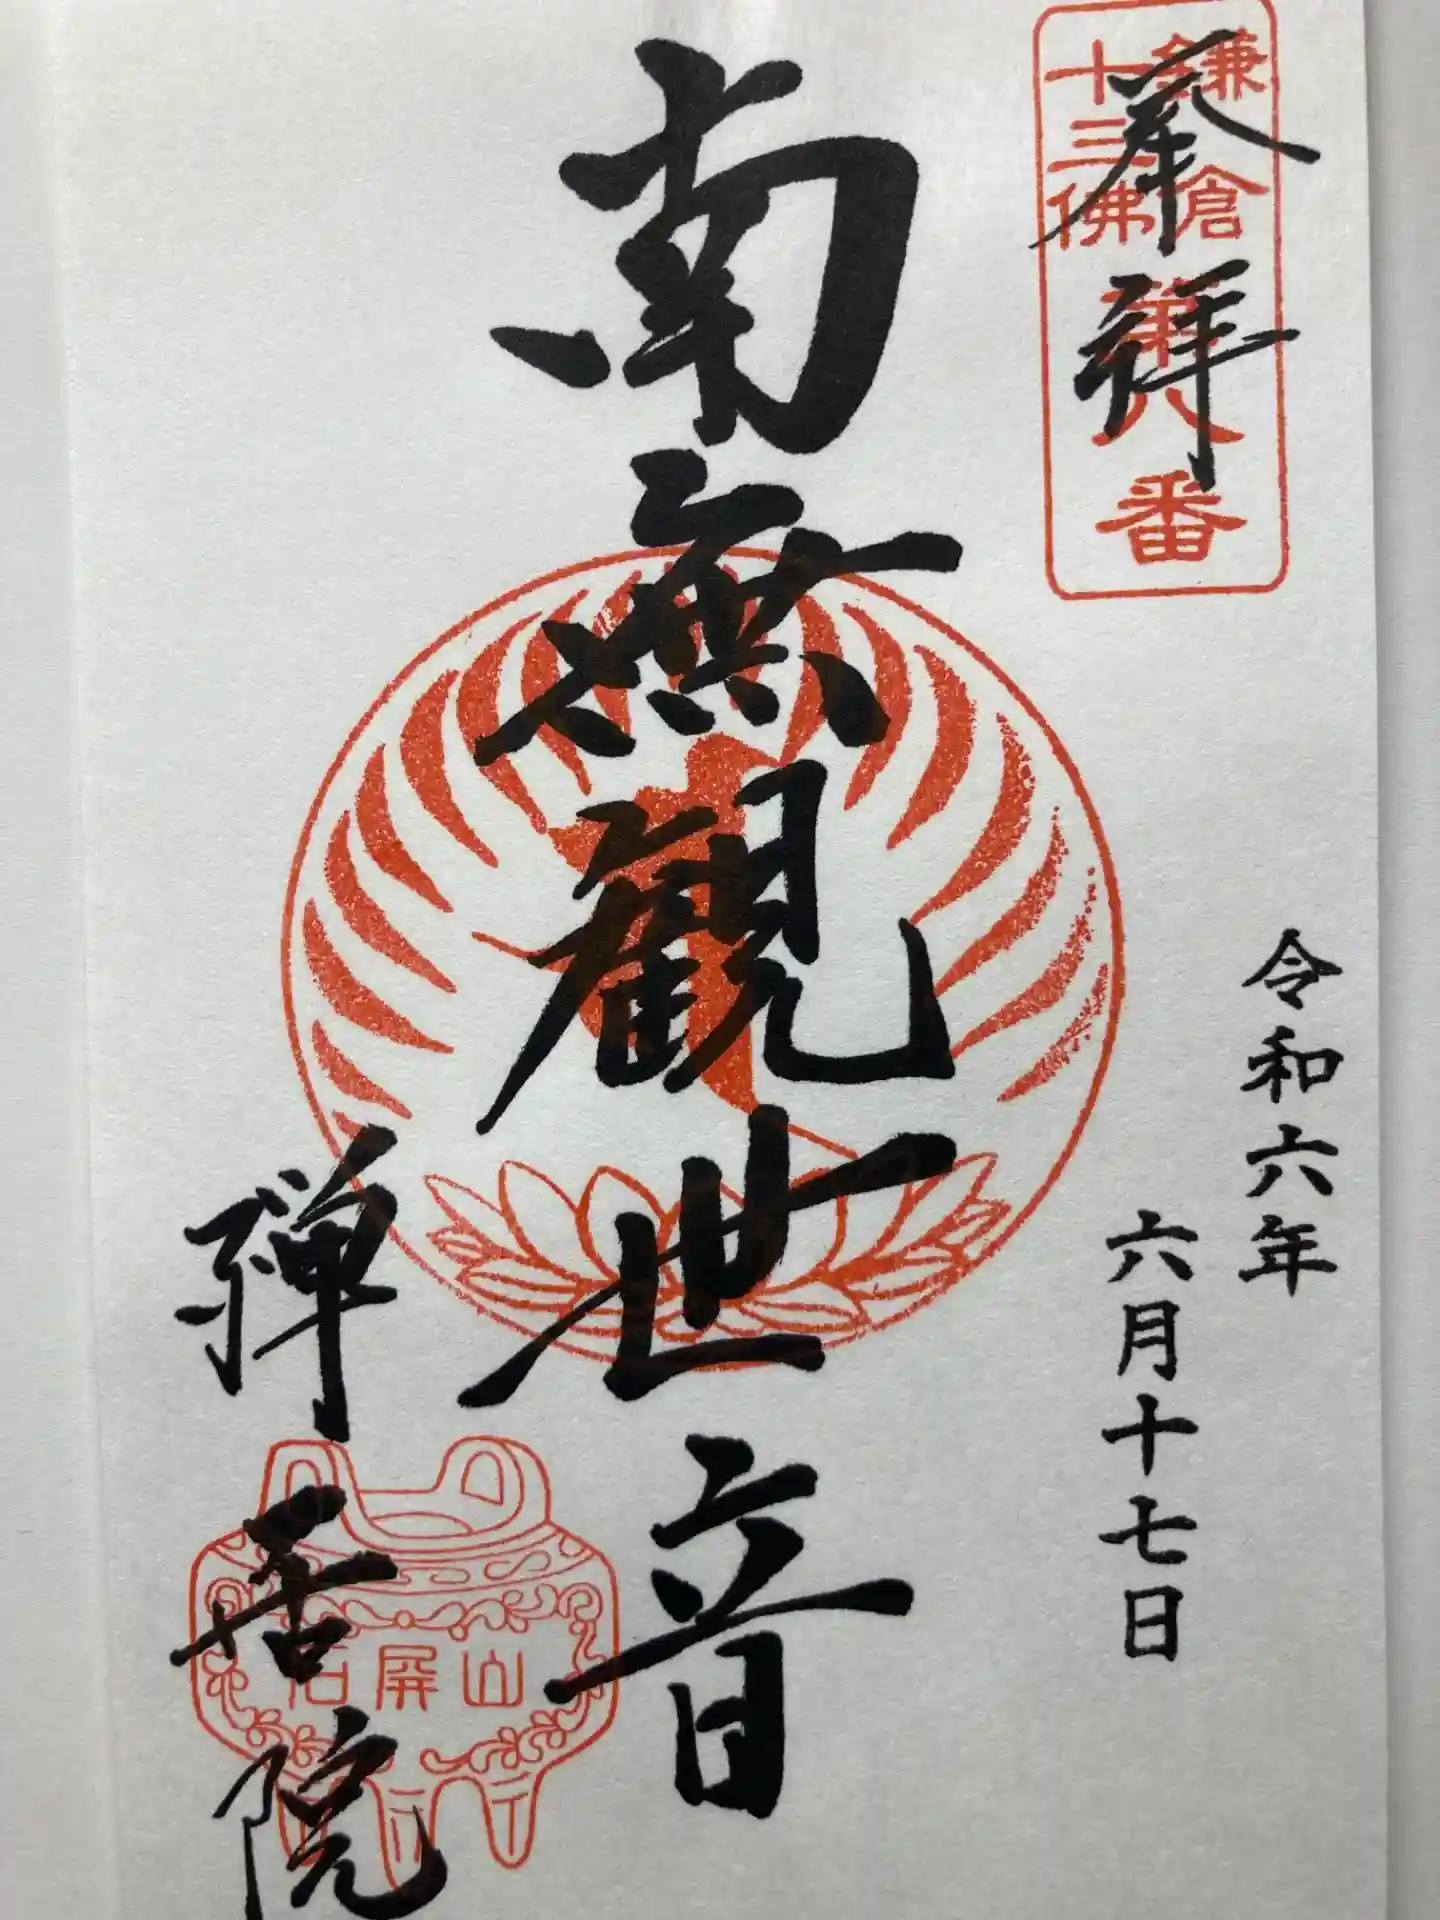 奉拝
鎌倉
十三佛
第八番
令和六年
六月十七日
南無観世音
禅居院
石屏山